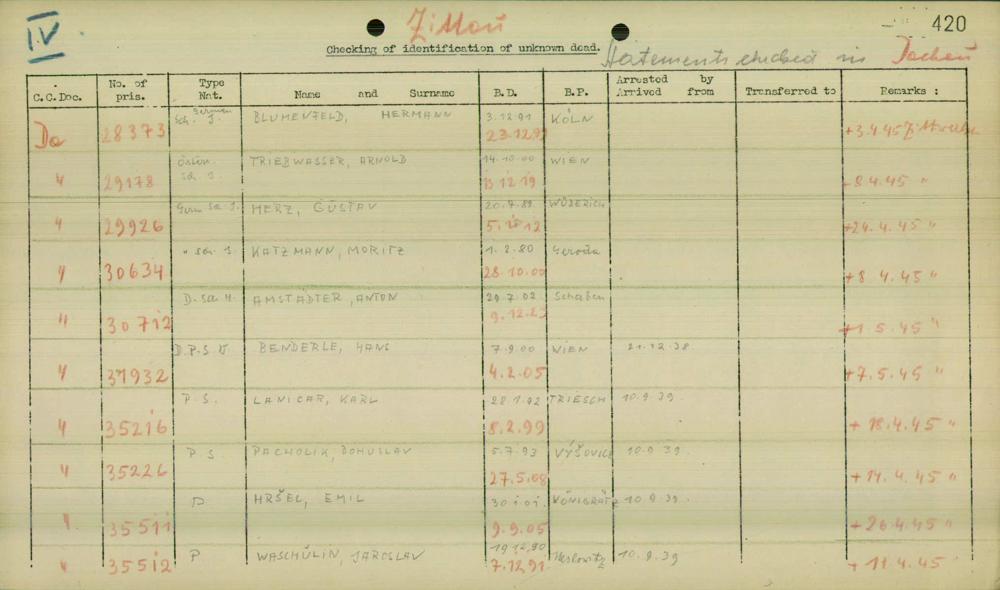 IV
Zittau
420
Checking of identification of unknown dead.
Statements checked in Dachau
C.C.Doc. No. of pris. Type Nat. Name and Surname B.D. B.P. Arrested by Arrived from Transferred to Remarks :
German
Sch. J. BLUMENFELD, HERMANN 3.12.91 KÖLN
Da 28373 23.12.9 +3.4.45 Zittau
Österr. TRIEBWASSER, ARNOLD 14.10.00 WIEN
" 29178 13 12 19 +8 4.45 "
Germ Sch. J. HERZ, GUSTAV 20.7.89
" 29926 +24.4.45 "
" Sch. J. KATZMANN, MORITZ 1.2.80 Geroda
" 30634 28.10.00 +8 4.45 "
AMSTÄDTER, ANTON 29.7.02 Scheiben
" 30712 +1 5.45 "
BENDERLE, HANS 7.9.00 WIEN 21.12.38
" 31932 4.2.05 +7.5.45 "
P.S. LANICAR, KARL 28.1.92 TRIESCH 10.9.39.
" 35216 8.2.99 + 18.4.45 "
P S PACHOLIK, BOHUSLAV 5.7.93 VÝŠOVICE 10.9 39.
" 35226 27.5.08 +14.4.45 "
P HRŠEL, EMIL 30.1.01. KÖNIGRÄTZ 10.9.39.
" 35511 9.9.05 +26.4.45 "
P WASCHULIN, JAROSLAV 19.12.90 10.9.39
" 35512 7.12.91 + 11.4.45